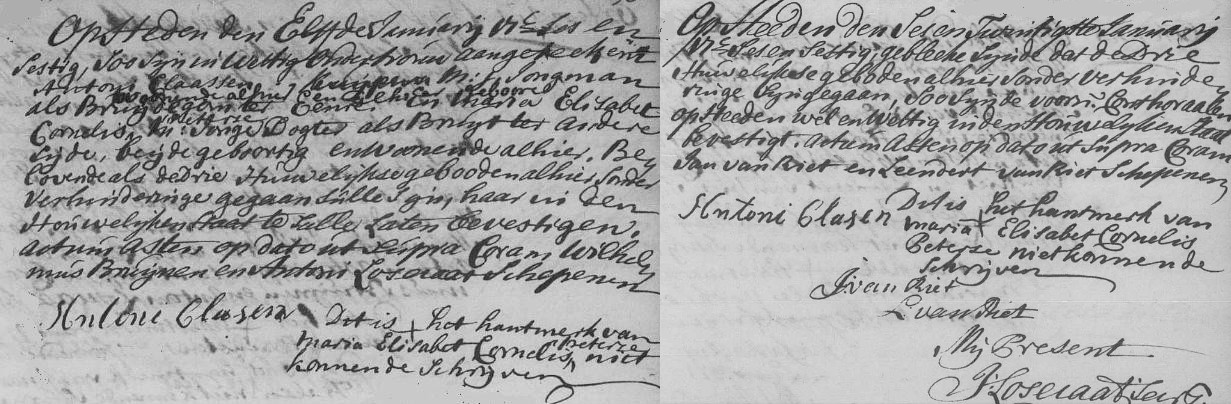 Op Heden den Elffde Januarij 17c Ses en
Sestig, Soo Syn in Wettig ondertrouw aangeteekent
Antoni Claassen M:j: Jongman
als Bruijdegom ter Eenre En Maria Elisabet
Cornelis Peterse Jonge Dogter als Bruijt ter andere
Syde, beijde geboortig en Woonende alhier. Bey
Lovende als de drie Huwelijkse gebooden alhier Sonder
verhinderinge gegaan Sulle Syn, haar in den
Houwelijken Staat te Sulle Laten bevestigen.
actum Asten op dato ut Supra Coram Wilhel
mus Bruijnen en Antoni Losecaat Schepenen
Antoni Clasen Dit is het hantmerk van
maria Elisabet Cornelis Peterse niet
konnende Schrijven
Op Heeden den Sesen Twintigste Januarij
17c Sesen Sestig, gebleeke Synde dat de Drie
Huwelijkse geboden alhier Sonder verhinde
ringe Syn gegaan, Soo Synde voorn:
op Heeden wel en Wettig in den Houwelyken Staat
bevestigt. actum Asten op dato ut Supra Coram
Jan van Riet en Leendert van Riet Schepenen
Antoni Clasen Dit is het hantmerk van
maria Elisabet Cornelis
Peterse niet konnende
Schrijven
J. van Riet
L van Riet
Mij Present
J: Losecaat Secrts.